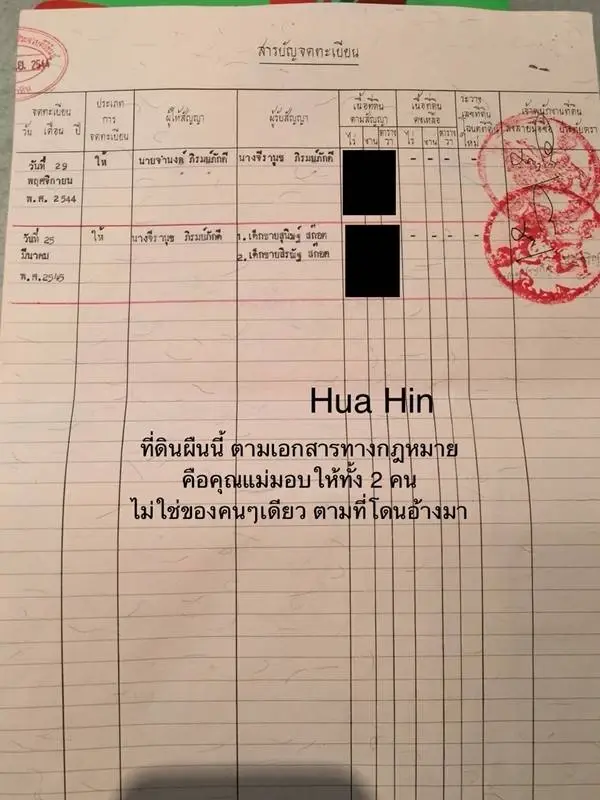 พ.ย. 2544
สารบัญจดทะเบียน
จดทะเบียน
วัน เดือน ปี
ประเภท
การ
จดทะเบียน
ผู้ให้สัญญา
ผู้รับสัญญา
เนื้อที่ดิน
ตามสัญญา
ไร่ งาน ตารางวา
เนื้อที่ดิน
คงเหลือ
ไร่ งาน ตารางวา
ระวาง
เลขที่ดิน
โฉนดที่ดิน
ใหม่
เจ้าพนักงานที่ดิน
ลงลายมือชื่อ ประทับตรา
วันที่ 29
พฤศจิกายน
พ.ศ. 2544
ให้
นายจำนงค์ ภิรมย์ภักดี
นางจีรานุช ภิรมย์ภักดี
- - -
วันที่ 25
มีนาคม
พ.ศ.2545
ให้
นางจีรานุช ภิรมย์ภักดี
1. เด็กชายสุนิษฐ์ สก๊อต
2. เด็กชายสิรณัฐ สก๊อต
- - -
Hua Hin
ที่ดินผืนนี้ ตามเอกสารทางกฎหมาย
คือคุณแม่มอบให้ทั้ง 2 คน
ไม่ใช่ของคนๆเดียว ตามที่โดนอ้างมา